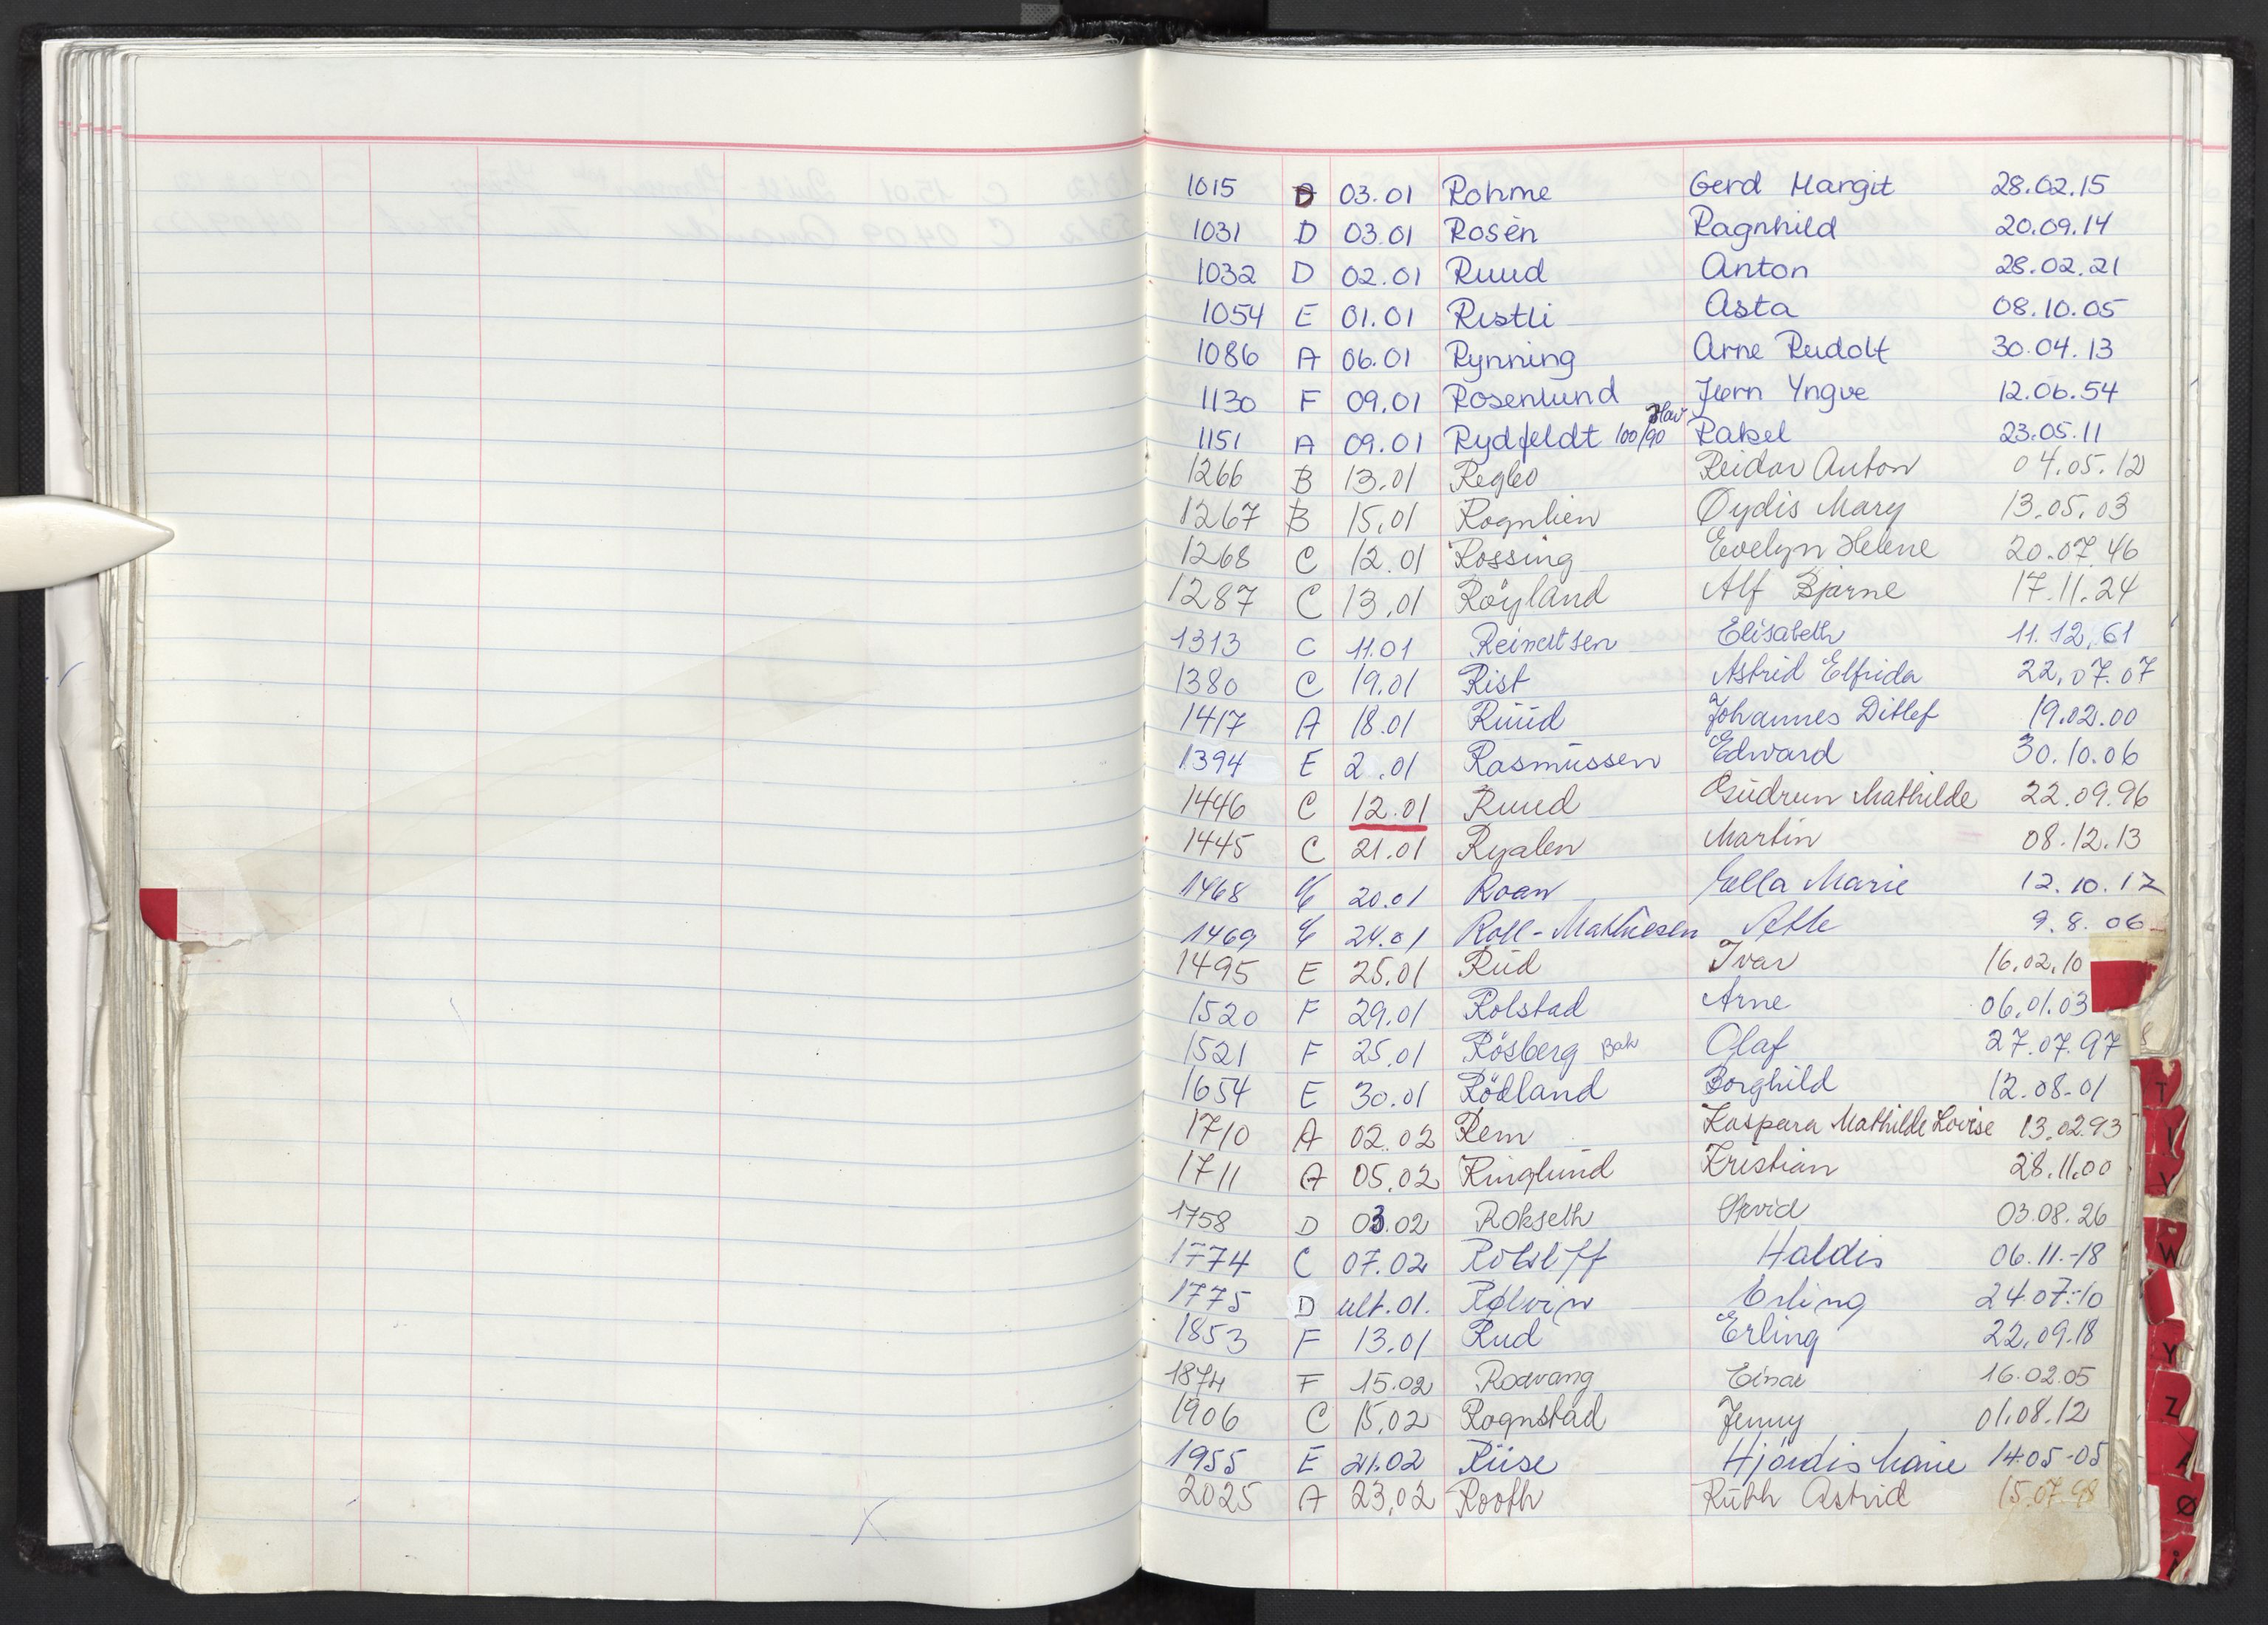 1015 D 03.01 Rohme Gerd Margit 28.02.15
1031 D 03.01 Rosèn Ragnhild 20.09.14
1032 D 02.01 Ruud Anton 28.02.21
1054 E 01.01 Ristli Asta 08.10.05
1086 A 06.01 Rynning Arne Rudolf 30.04.13
1130 F 09.01 Rosenlund Jørn Yngve 12.06.54
1151 A 09.01 Rydfeldt 100/90 Rakel 23.05.11
1266 B 13.01 Regbo Reidar Anton 04.05.12
1267 B 15.01 Rognlien Øydis Mary 13.05.03
1268 C 12.01 Rossing Evelyn Helene 20.07.46
1287 C 13.01 Röyland Alf Bjarne 17.11.24
1313 C 11.01 Reinertsen Elisabeth 11.12.61
1380 C 19.01 Rist Astrid Elfrida 22.07.07
1417 A 18.01 Ruud Johannes Ditlef 19.02.00
1394 E 2 .01 Rasmussen Edward 30.10.06
1446 C 12.01 Ruud Gudrun Mathilde 22.09.96
1445 C 21.01 Ryalen Martin 08.12.13
1468 20.01 Roan Ella Marie 12.10.12
1469 24.01 Roll-Mathiesen Atle 9.8.06
1495 E 25.01 Rud Ivar 16.02.10
1520 F 29.01 Rolstad Arne 06.01.03
1521 F 25.01 Rösberg Bak Olaf 27.07.97
1654 E 30.01 Rödland Borghild 12.08-01
1710 A 02.02 Rem Kaspara Mathilde Lovise 13.02.93
1711 A 05.02 Ringlund Kristian 28.11.00
1758 D 03.02 Rokseth Arvid 03.08.26
1774 C 07.02 Haldis 06.11.-18
1775 D ult.01. Rølvin Erling 24.07.-10
1853 F 13.01 Rud Erling 22.09.18
1874 F 15.02 Rodvang Einar 16.02.05
1906 C 15.02 Rognstad Jenny 01.08.12
1955 E 21.02 Riise Hjördis Marie 14.05-05
2025 A 23.02 Rooth Ruth Astrid 15.07.98
T
V
W
Y
Z
Ø
Å